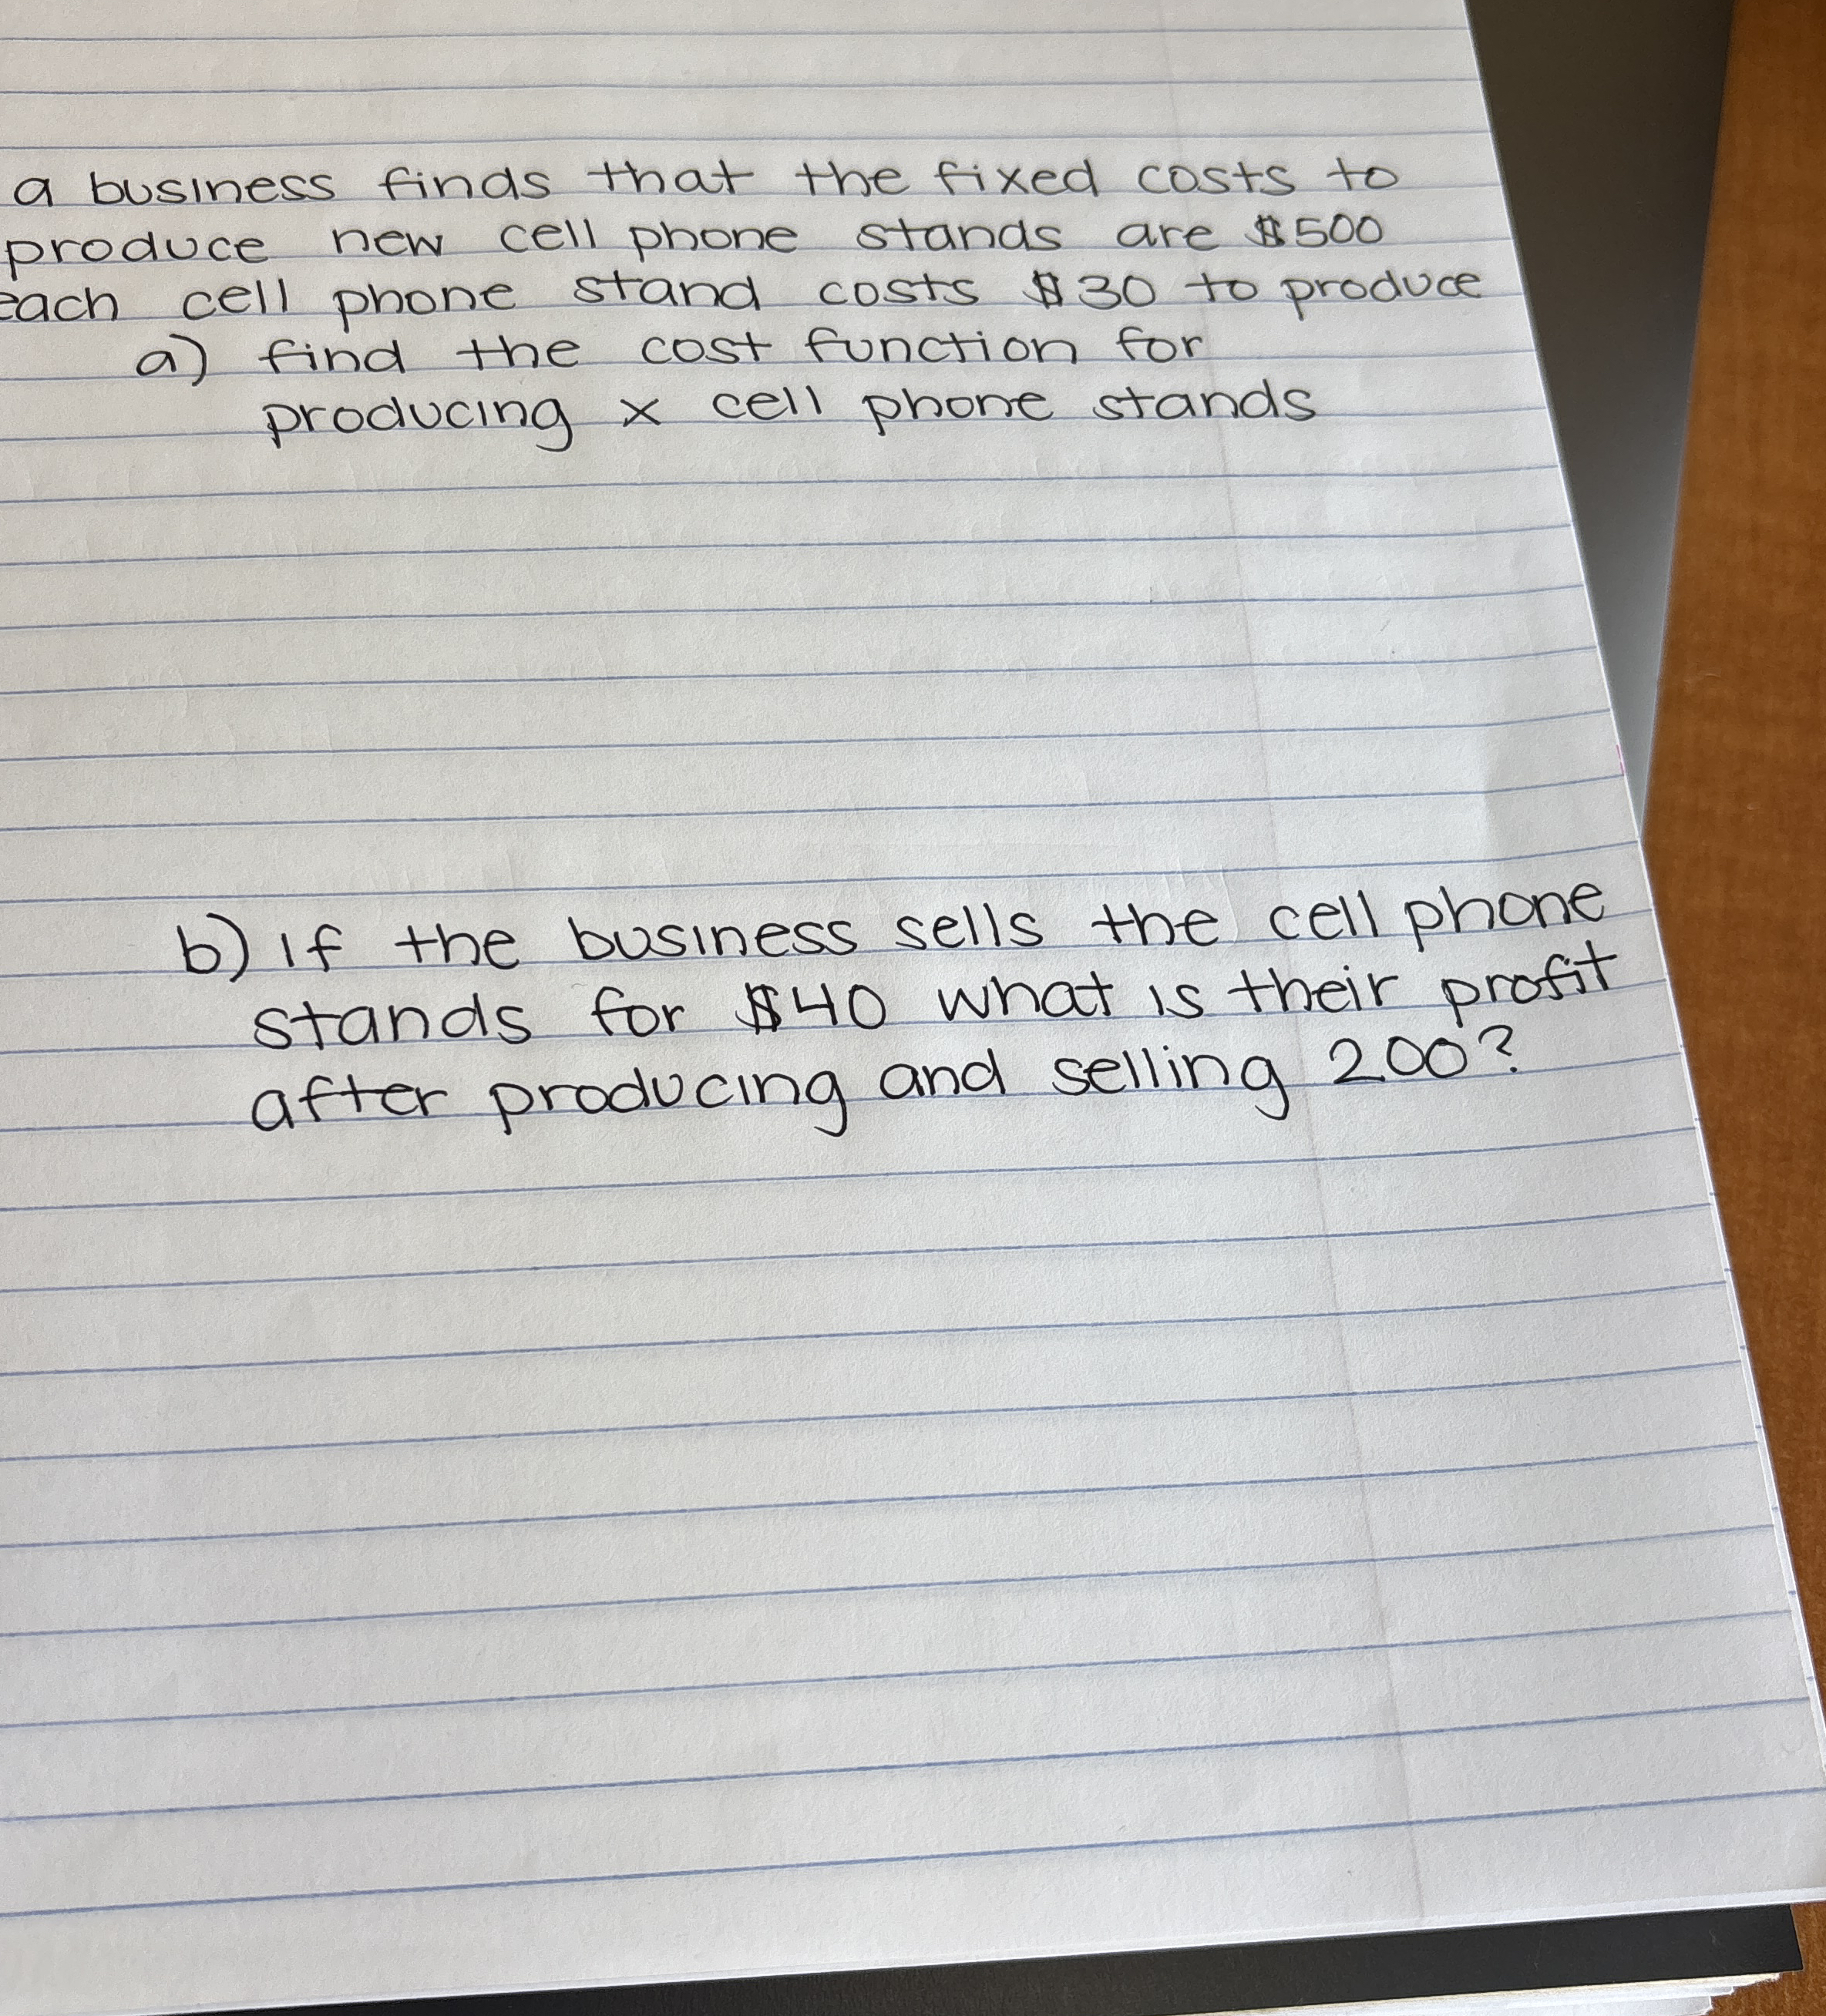 a business finds that the fixed costs to
produce new cell phone stands are $500
each cell phone stand costs $30 to produce
a) find the cost function for
producing x cell phone stands
b) if the business sells the cell phone
stands for $40 what is their profit
after producing and selling 200?